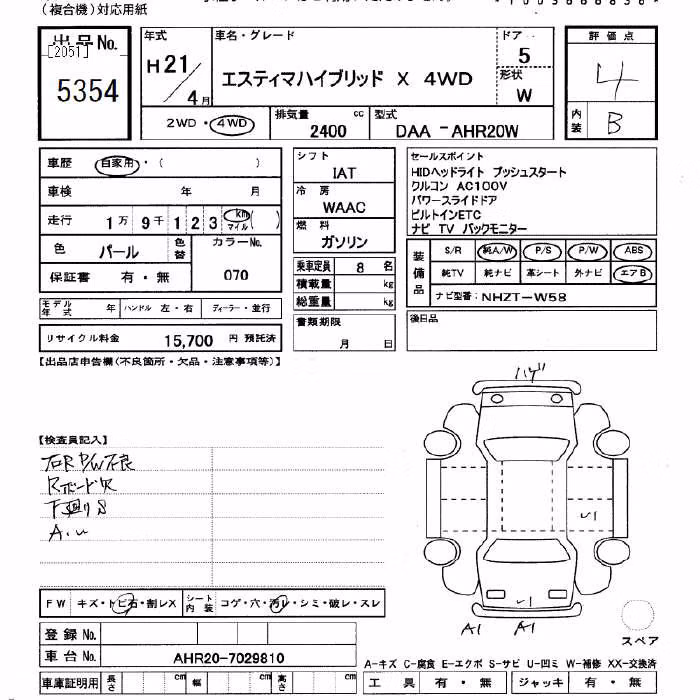 (複合機)対応用紙
出品No. 年式 車名・グレード ドア 評価点
[2051] 5354
H21/4月 エスティマハイブリッド X 4WD 5
形状 W
4
2WD・4WD 排気量 cc 2400 型式 DAA-AHR20W
内装 B
車歴 自家用・( )
車検 年 月
走行 1万 9千 1 2 3 km マイル ( )
色 パール 色替 カラーNo. 070
保証書 有・無
モデル年式 年 ハンドル 左・右 ディーラー・並行
リサイクル料金 15,700 円 預託済
シフト IAT
冷房 WAAC
燃料 ガソリン
乗車定員 8 名
積載量 kg
総重量 kg
書類期限
月 日
セールスポイント
HIDヘッドライト プッシュスタート
ワルコン AC100V
パワースライドドア
ビルトインETC
ナビ TV バックモニター
装備品 S/R 純A/W P/S P/W ABS
純TV 純ナビ 革シート 外ナビ エアB
ナビ型番: NHZT-W58
後日品
【出品店申告欄(不良箇所・欠品・注意事項等)】
ハゲ
【検査員記入】
右R P/W不良
Rボード欠
下廻りS
A.U
U1
U1
A1 A1
スペア
FW キズ・トビ石・割レX シート内装 コゲ・穴・汚レ・シミ・破レ・スレ
登録No.
車台No. AHR20-7029810
車庫証明用 長さ cm 幅 cm 高さ cm
A-キズ C-腐食 E-エクボ S-サビ U-凹ミ W-補修 XX-交換済
工具 有・無 ジャッキ 有・無